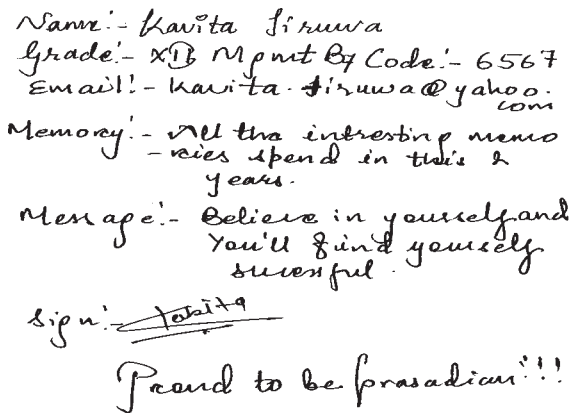 Name:- Kavita Jiruwa
Grade:- XII Mgmt B7 Code:- 6567
Email:- kavita.jiruwa@yahoo.
com
Memory:- All the intresting memo
-ries spend in this 2
years.
Message:- Believe in yourself and
You'll find yourself
sucessful.
Sign:- Kabita
Proud to be prasadian!!!